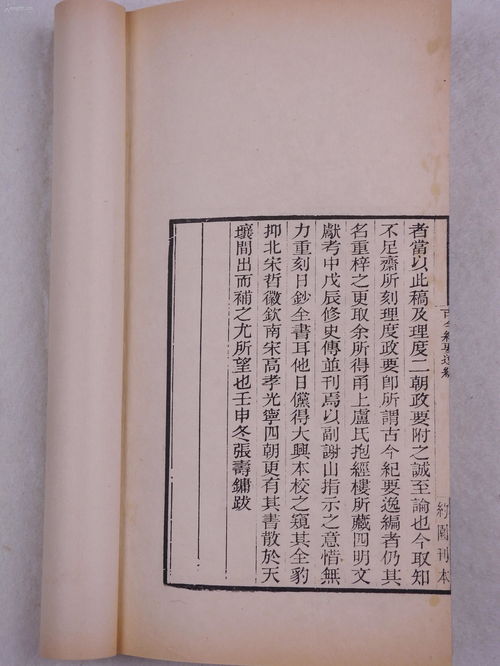 古今紀要逸編
約園刊本
者當以此稿及理度二朝政要附之誠至論也今取知
不足齋所刻理度政要卽所謂古今紀要逸編者仍其
名重梓之更取余所得甬上盧氏抱經樓所藏四明文
獻考中戊辰修史傳並刊焉以副謝山指示之意惜無
力重刻日鈔全書耳他日儻得大興本校之窺其全豹
抑北宋哲徽欽南宋高孝光寧四朝更有其書散於天
壤間出而補之尤所望也壬申冬張壽鏞跋